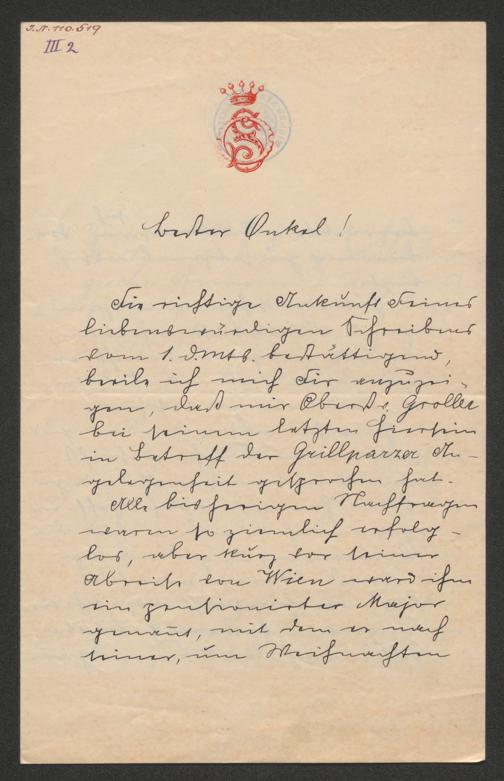 J.N. 110.519
III 2
Bester Onkel!
Die richtige Ankunft Deines
liebenswürdigen Schreibens
vom 1. d. Mts. bestättigend,
beeile ich mich Dir anzuzei-
gen, daß mir Oberst v. Groller
bei seinem letzten Hiersein
in Betreff der Grillparzer An-
gelegenheit gesprochen hat.
Alle bisherigen Nachfragen
waren so ziemlich erfolg-
los, aber kurz vor seiner
Abreise von Wien ward ihm
ein pensionirter Major
genannt, mit dem er nach
seiner, um Weihnachten